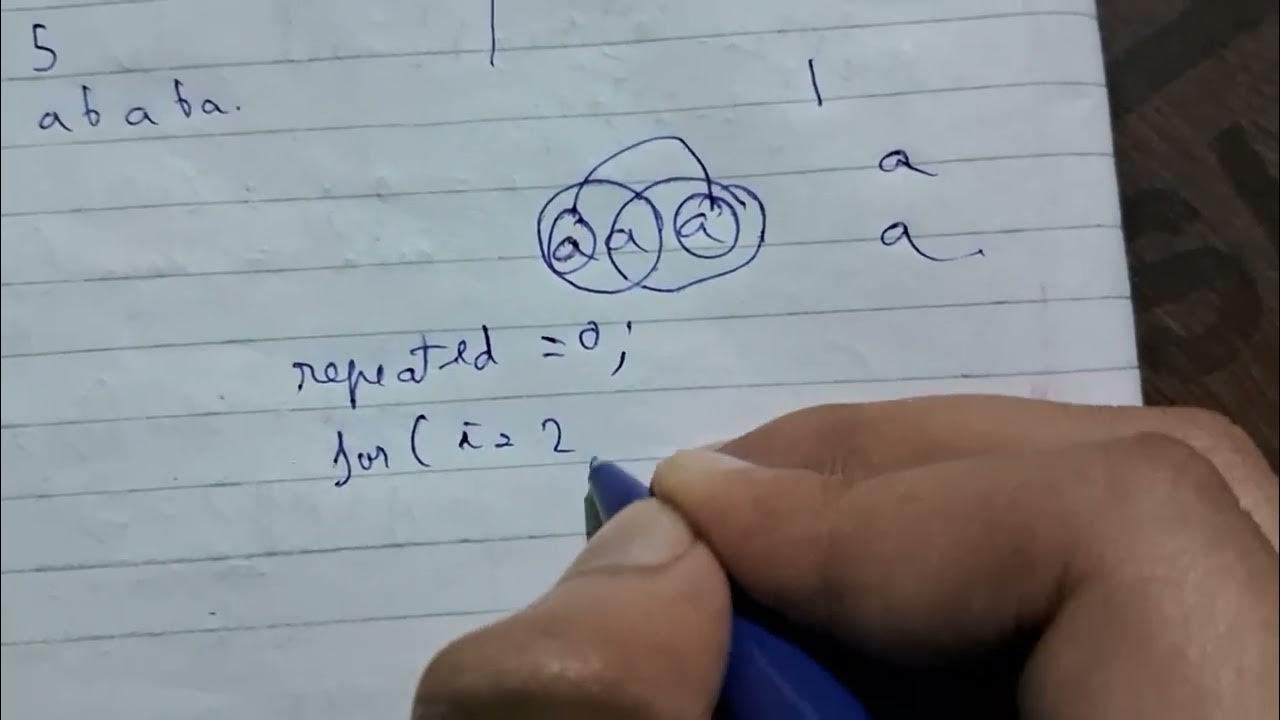 5
a b a b a.
1
a
a a a
a.
repeated = 0;
for ( i = 2